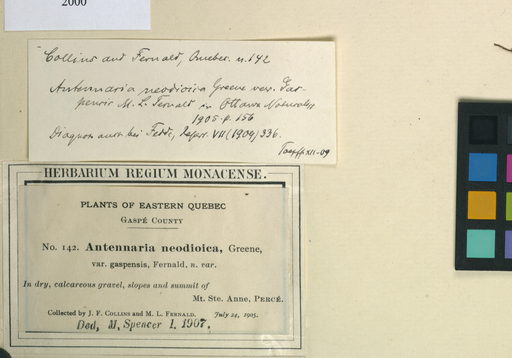 2000
Collins and Fernald, Quebec. n. 142
Antennaria neodioica Greene var. Gas-
pensis M. L. Fernald in Ottawa Naturalist
1905 p. 156
Diagnosis auch bei Fedde, Repert. VII (1909) 336.
XII-09
HERBARIUM REGIUM MONACENSE.
PLANTS OF EASTERN QUEBEC
GASPÉ COUNTY
No. 142. Antennaria neodioica, Greene,
var. gaspensis, Fernald, n. var.
In dry, calcareous gravel, slopes and summit of
Mt. Ste. Anne, PERCÉ.
Collected by J. F. COLLINS and M. L. FERNALD. July 24, 1905.
Ded. M. Spencer 1. 1907.